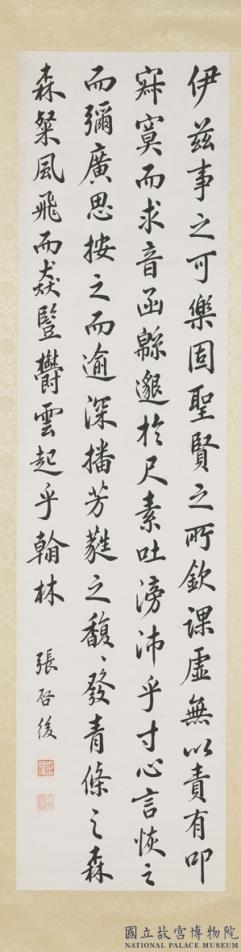 伊茲事之可樂固聖賢之所欽課虛無以責有叩
寂寞而求音函緜邈於尺素吐滂沛乎寸心言恢之
而彌廣思按之而逾深播芳蕤之馥〻發青條之森
森粲風飛而猋豎鬱雲起乎翰林
張啓後
國立故宮博物院
NATIONAL PALACE MUSEUM